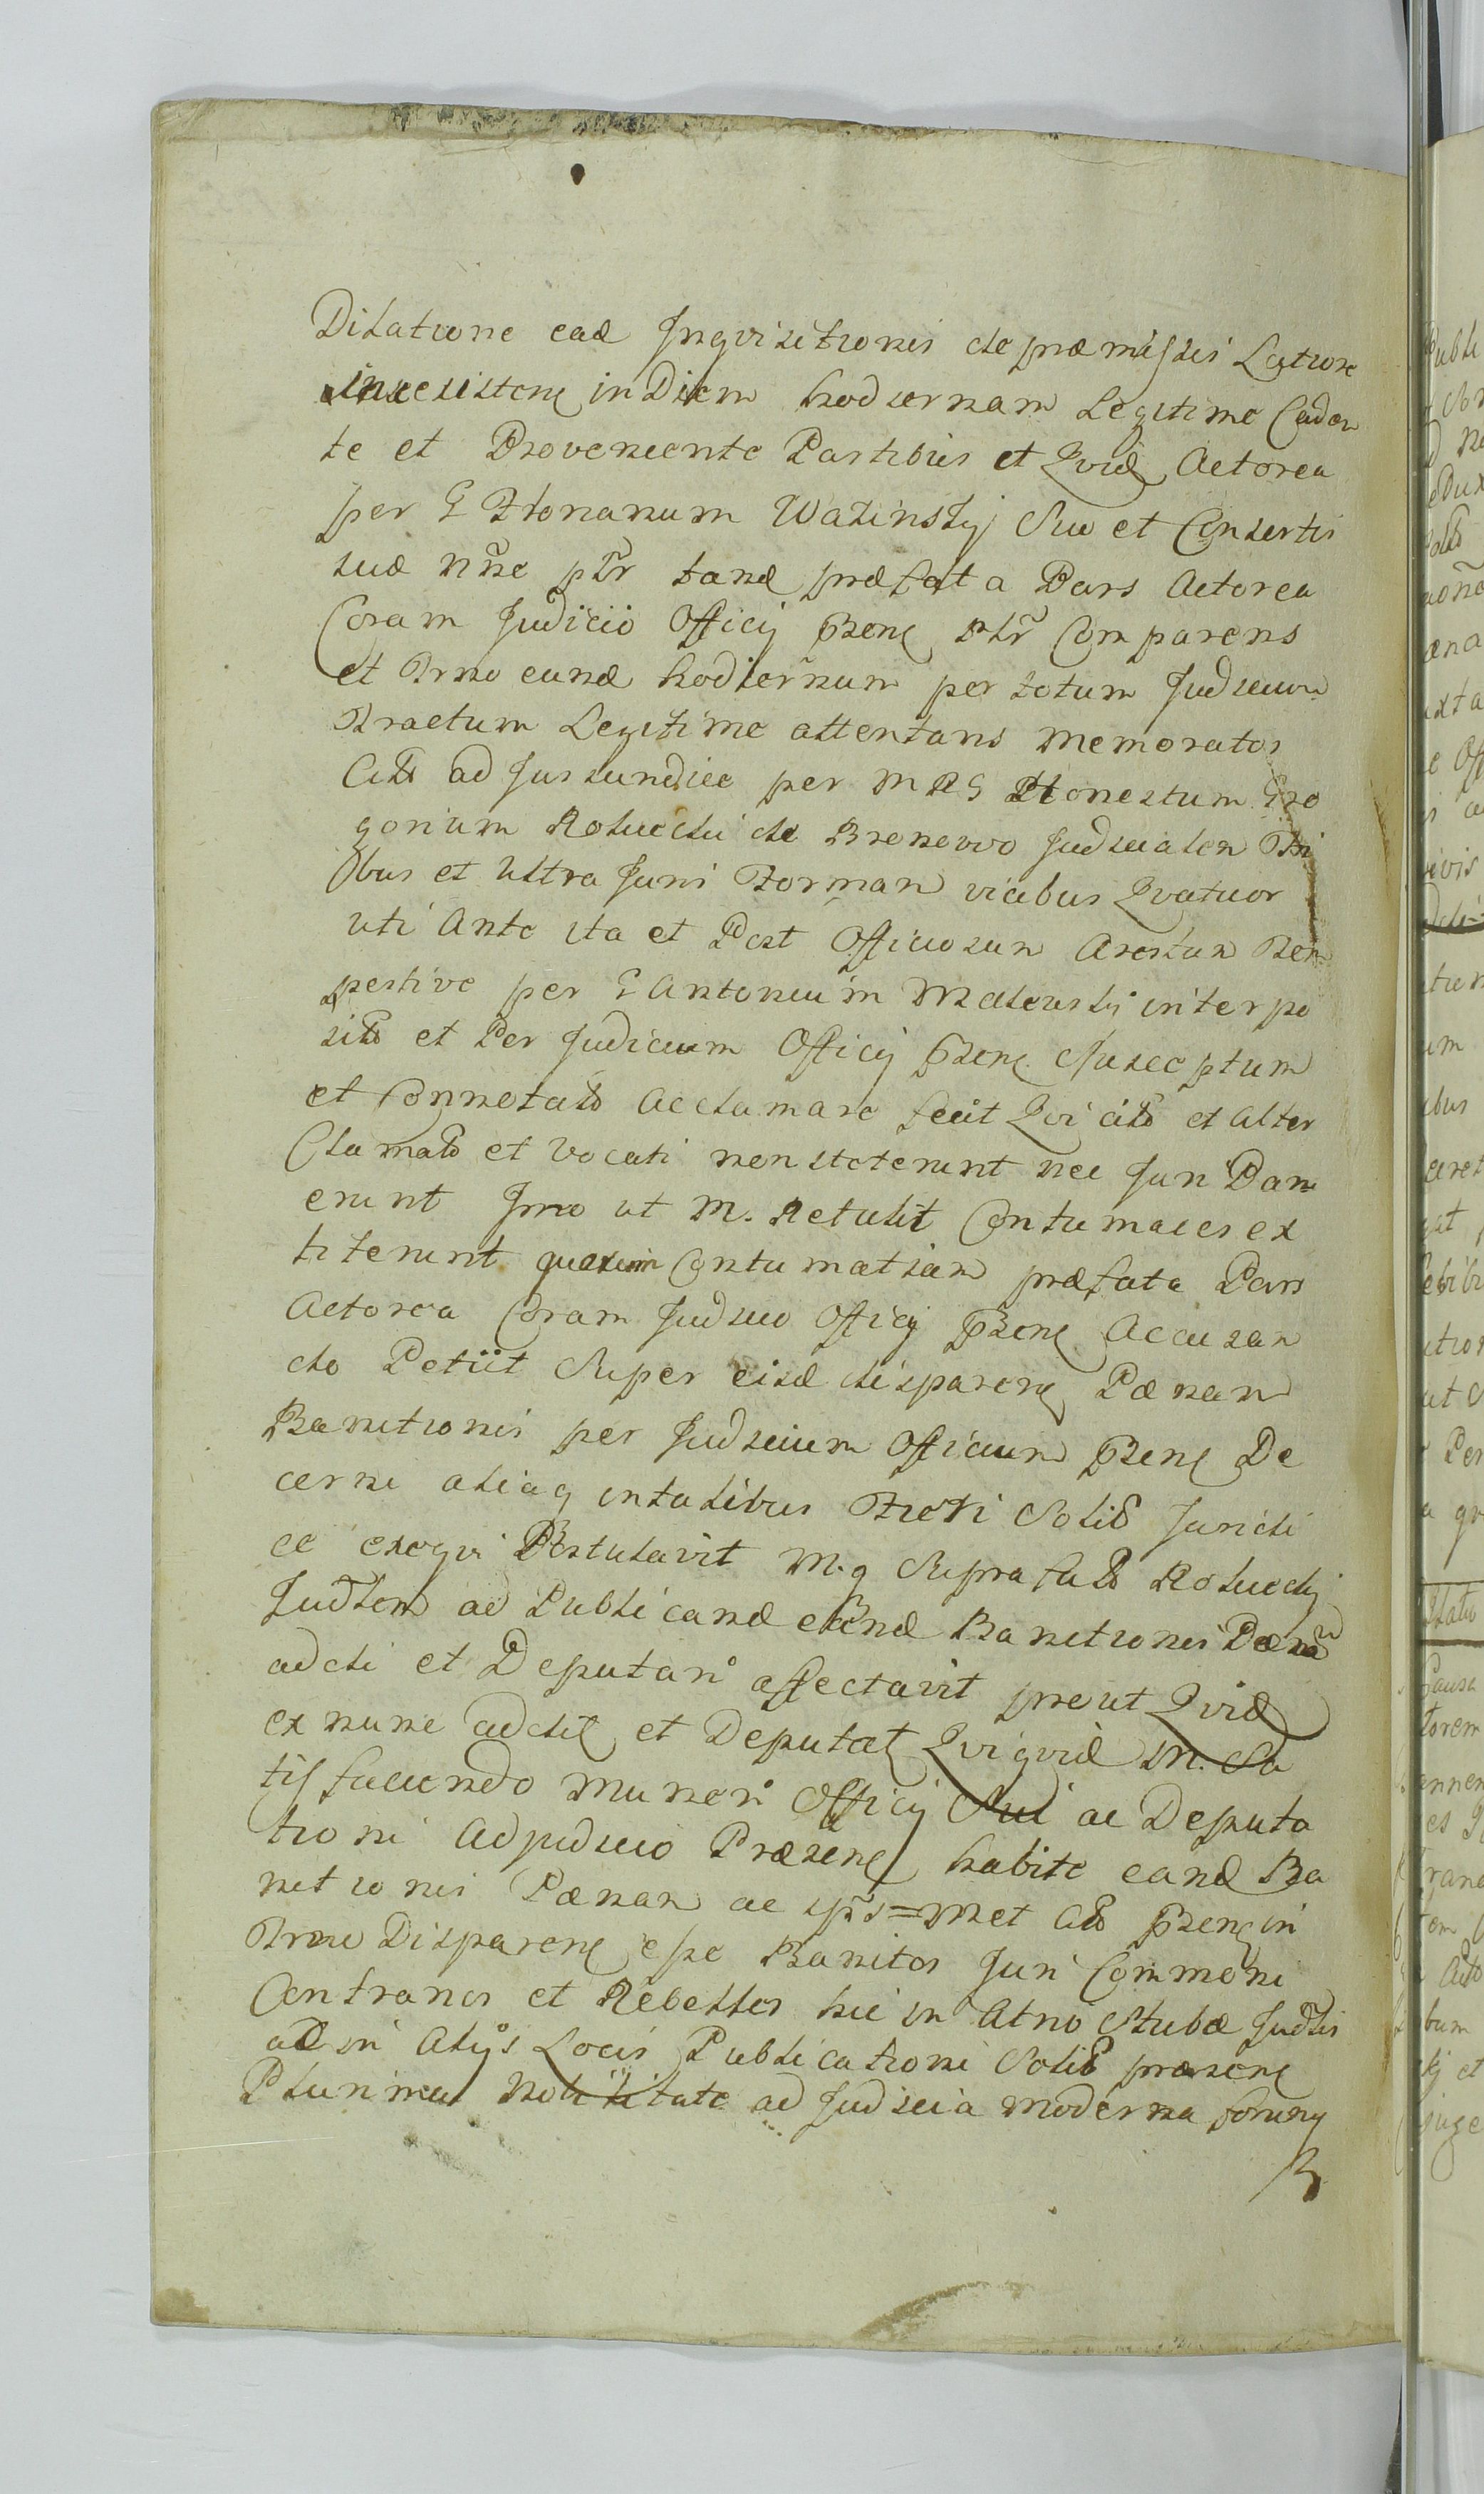 Dilatione ead Inqvisitionis de præmissis Latione
inexisten in Diem hodiernam Legitime Caden
te et Proveniente Partibus et Qvid Actorea
per G Florianum Walinskj Suo et Consortis
suæ nne ptr tand præfata Pars Actorea
Coram Judicio Officij Prens ptr Comparens
et Trno eund hodiernum per totum Judicium
Tractum Legitime attentans memoratos
Citt ad Jus sundicc per M R G Honestum Gre
gorium Rotucdi de Brenowo Judicialem Tri
bus et Ultra Juris Formam vicibus Qvatuor
uti Ante ita et Post Officiosum Arestum Tem
pestive per G Antonium Maleuskj interpo
sitt et Per Judicium Officij Prens Susceptum
et Connotatt Acclamare fecit Qvi citt et Alter
Clamatt et Vocati non steterunt nec Juri Paru
erunt Imo ut M. Retulit Contumaces ex
titerunt quorum Contumatiam præfata Pars
Actorea Coram Judicio Officij Prens Accusan
do Petiit Super eisd disparens Pænam
Banitionis per Judicium Officium Prens De
cerni aliaq intalibus Fieri Solit Juridi
ce exeqvi Postulavit M.q Suprafatt Rotucdj
Judlem ad Publicand eand Banitionis Pænã
addi et Deputari affectavit prout Qvid
ex nunc addit et Deputat Qviqvid M. Sa
tisfaciendo muneri Officij Sui ac Deputa
tioni Adjudicio Præsens habite eand Ba
nitionis Pænam ac ipos=Met Citt Prens in
Trno Disparens esse Banitos Juri Commoni
Contrarios et Rebelles hic in Atrio Stubæ Judlis
ac in Alijs Locis Publicationi Solit præsens
Plurima Nobilitate ad Judicia moderna forens